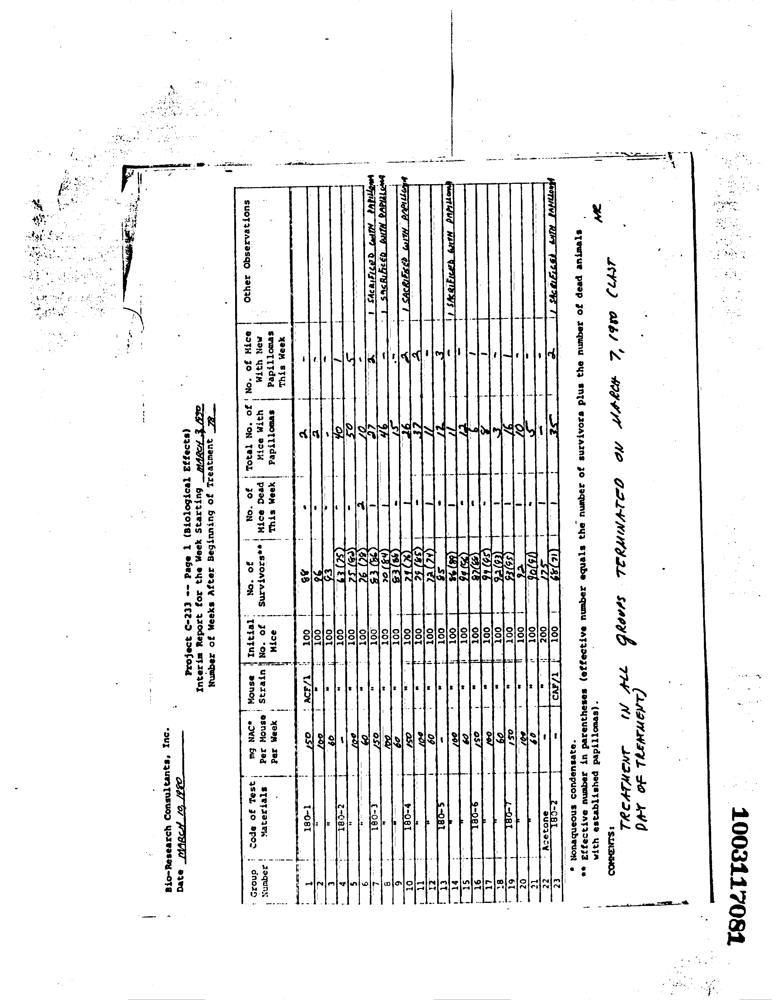 Bio-Research Consultants, Inc.
Date MARCH 10, 1980
Project C-233 -- Page 1 (Biological Effects)
Interim Report for the Week Starting MARCH 3, 1980
Number of Weeks After Beginning of Treatment 78
Group Number | Code of Test Materials | mg NAC* Per Mouse Per Week | Mouse Strain | Initial No. of Mice | No. of Survivors** | No. of Mice Dead This Week | Total No. of Mice With Papillomas | No. of Mice With New Papillomas This Week | Other Observations
1 180-1 150 ACF/1 100 88 - 2 -
2 " 100 " 100 96 - 2 -
3 " 60 " 100 93 - - -
4 180-2 - " 100 63 (75) - 40 1
5 " 100 " 100 75 (82) - 50 5
6 " 60 " 100 76 (78) 2 10 -
7 180-3 150 " 100 83 (86) 1 27 2 1 SACRIFICED WITH PAPILLOMA
8 " 100 " 100 70 (84) 1 46 - 1 SACRIFICED WITH PAPILLOMA
9 " 60 " 100 83 (86) - 15 -
10 180-4 150 " 100 71 (76) 1 26 2 1 SACRIFICED WITH PAPILLOMA
11 " 100 " 100 79 (85) - 37 2
12 " 60 " 100 72 (74) 1 11 -
13 180-5 - " 100 85 - 12 3
14 " 100 " 100 86 (89) 1 11 - 1 SACRIFICED WITH PAPILLOMA
15 " 60 " 100 94 (96) - 12 -
16 180-6 150 " 100 87 (88) - 6 1
17 " 100 " 100 94 (95) - 8 1
18 " 60 " 100 92 (93) - 3 -
19 180-7 150 " 100 93 (95) 1 16 1
20 " 100 " 100 92 - 10 -
21 " 60 " 100 90 (91) - 5 -
22 Acetone - " 200 175 1 - -
23 180-2 - CAF/1 100 68 (71) 1 35 2 1 SACRIFICED WITH PAPILLOMA
* Nonaqueous condensate.
** Effective number in parentheses (effective number equals the number of survivors plus the number of dead animals
with established papillomas).
COMMENTS:
TREATMENT IN ALL GROUPS TERMINATED ON MARCH 7, 1980 (LAST
DAY OF TREATMENT)
1003117081